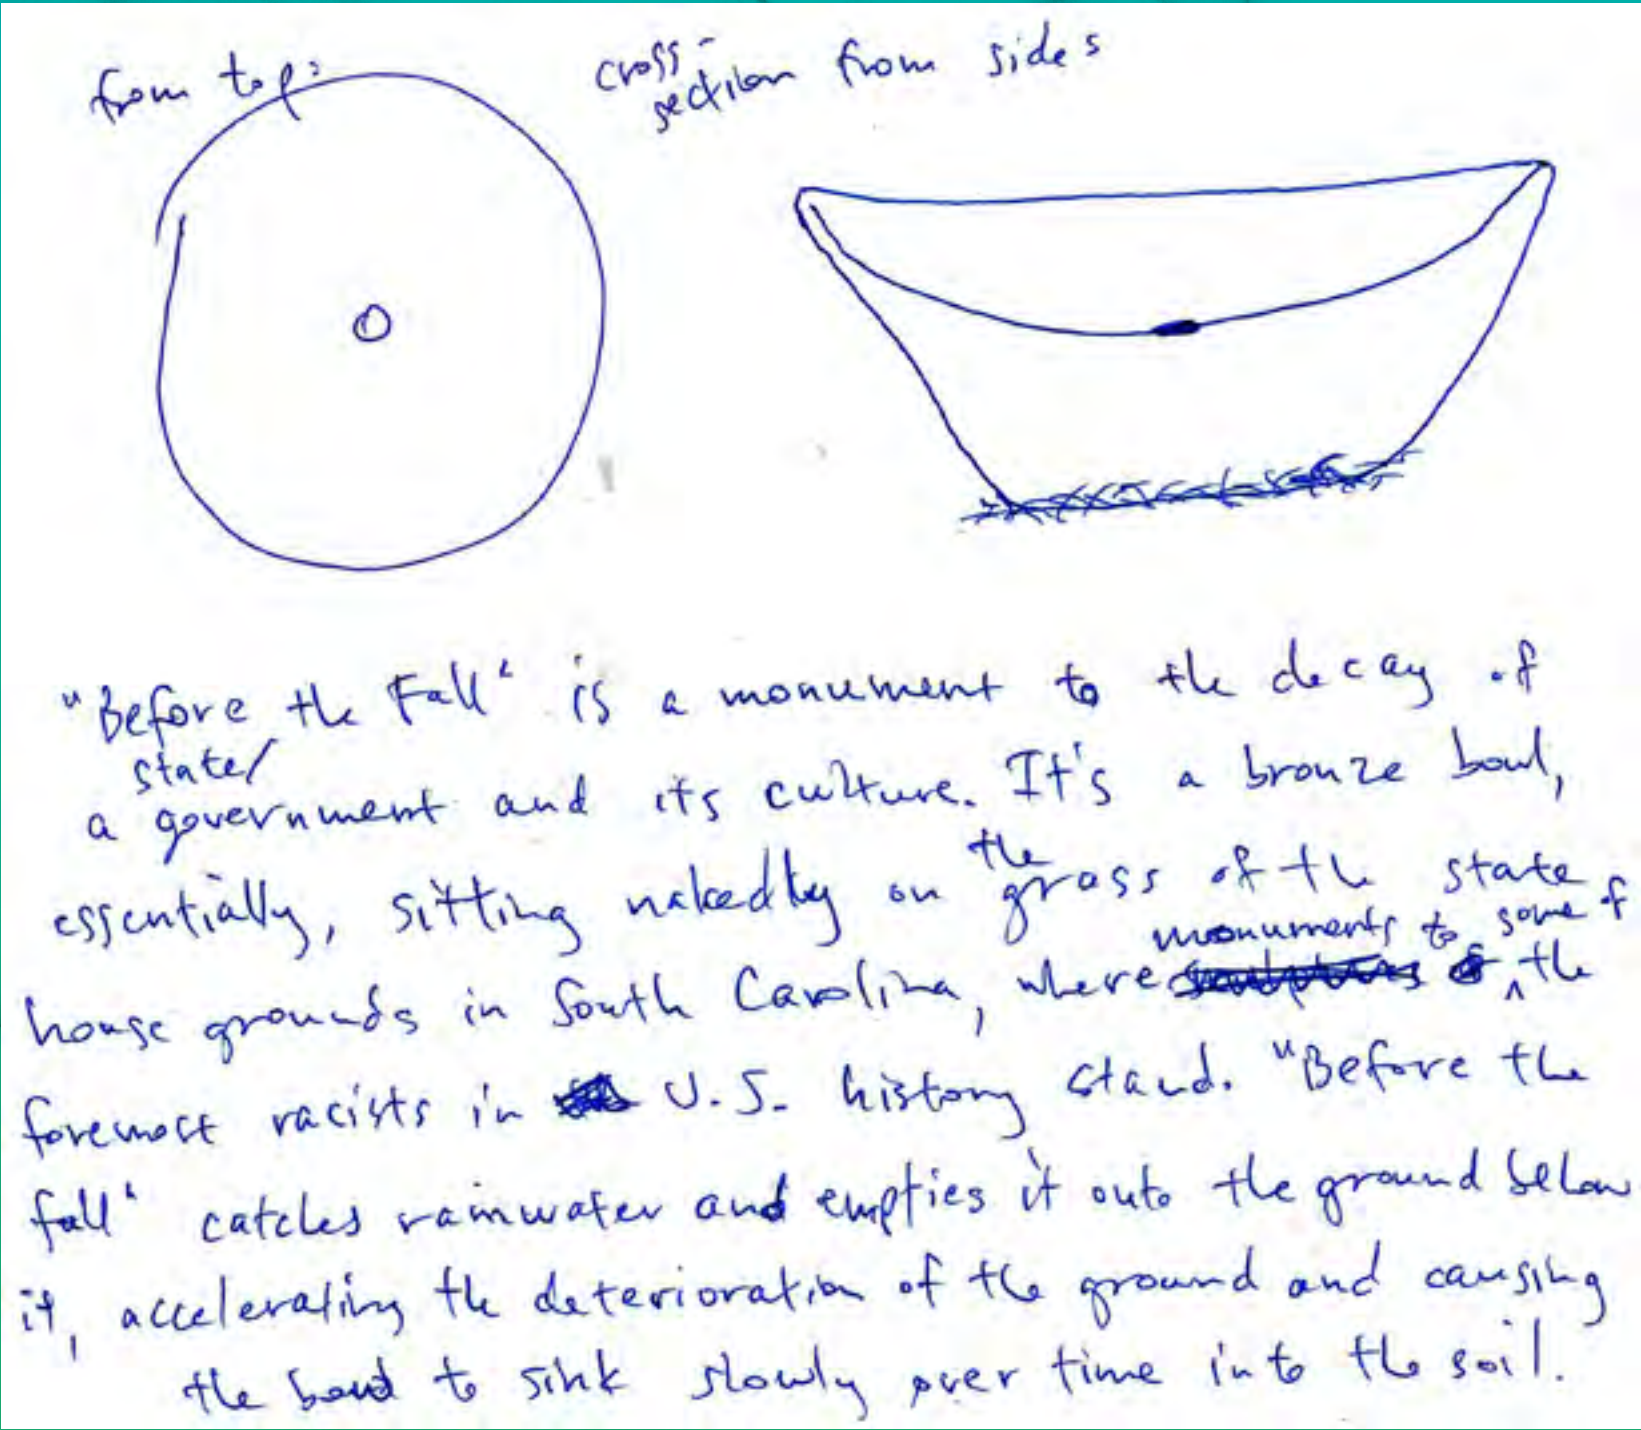 from top:
cross-
section from sides
"Before the Fall" is a monument to the decay of
state/
a government and its culture. It's a bronze bowl,
essentially, sitting nakedly on the grass of the state
monuments to some of
house grounds in South Carolina, where the
foremost racists in U.S. history stand. "Before the
fall" catches rainwater and empties it onto the ground below
it, accelerating the deterioration of the ground and causing
the bowl to sink slowly over time into the soil.